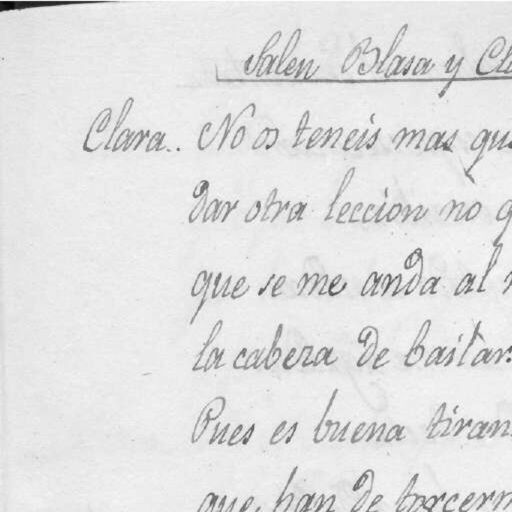 Salen Blasa y Cla
Clara.. No os teneis mas que
dar otra leccion no q
que se me anda al r
la cabeza de bailar.
Pues es buena tiran
que han de torcerm